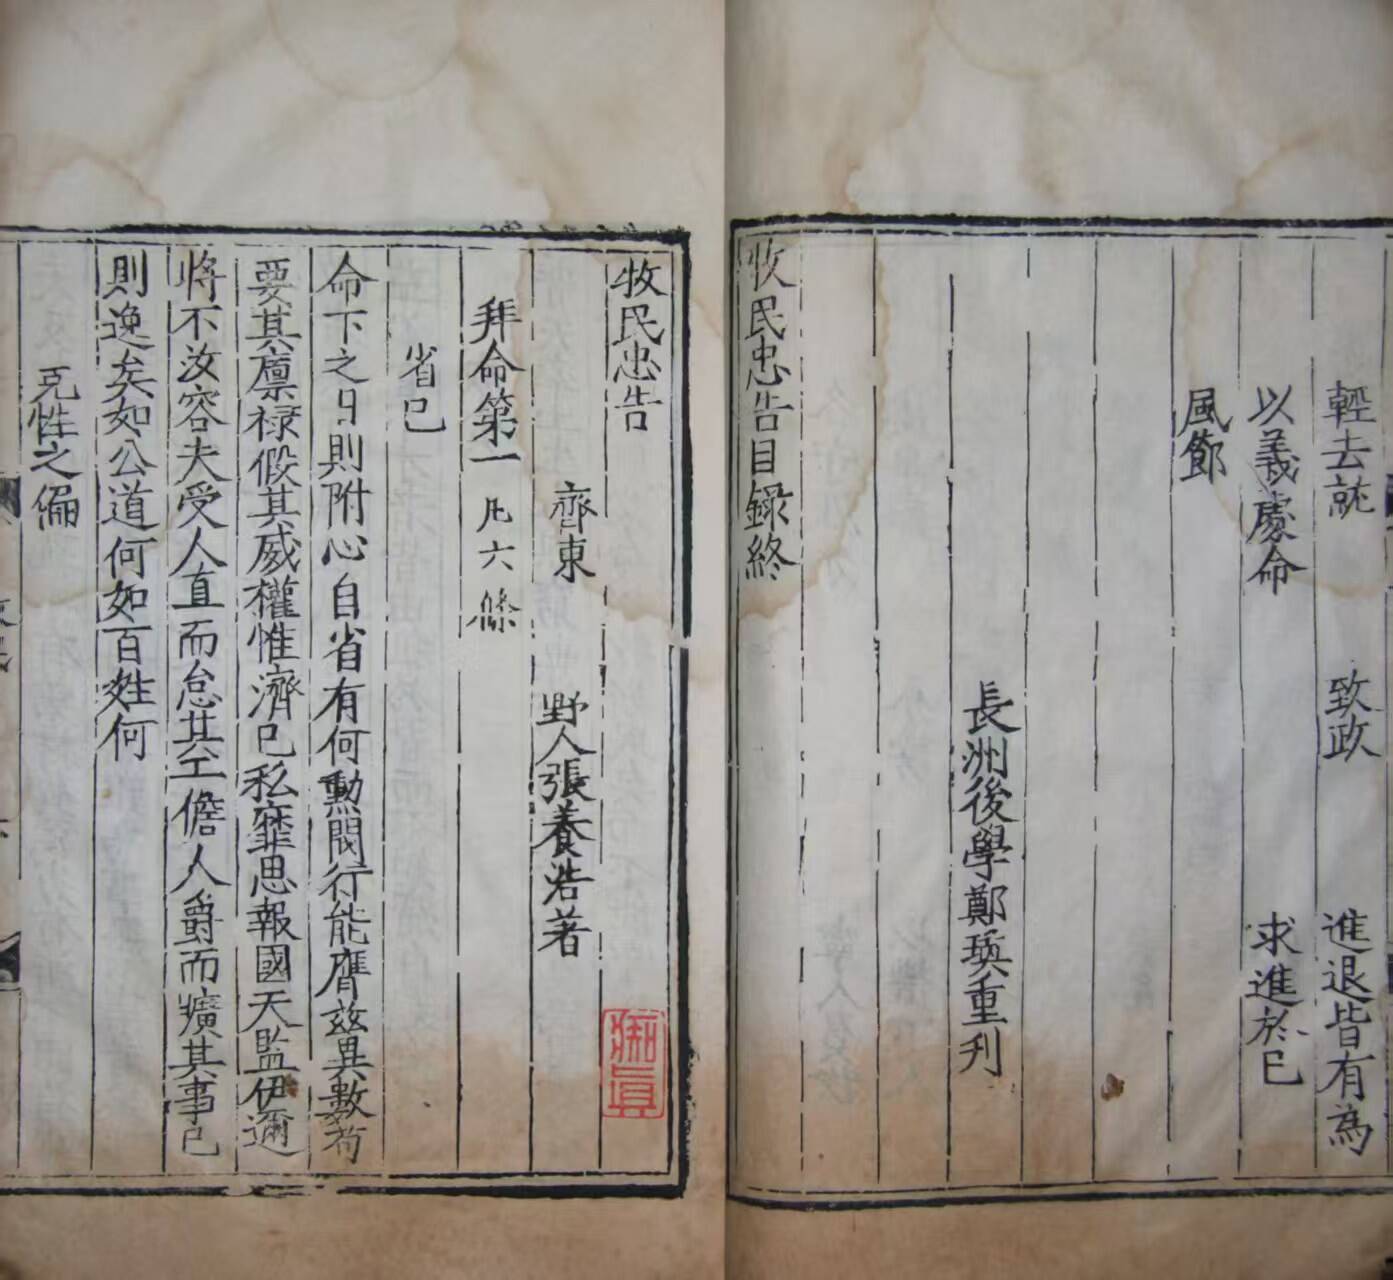 輕去就 致政 進退皆有為
以義處命 求進於已
風節
長洲後學鄭瑛重刋
牧民忠告目錄終
牧民忠告
齊東 野人張養浩著
拜命第一 凡六條
省已
命下之日則附心自省有何勲閥行能膺兹異數苟
要其廩禄假其威權惟濟已私靡思報國天監伊邇
將不汝容夫受人直而怠其工儋人爵而曠其事已
則逸矣如公道何如百姓何
克性之偏